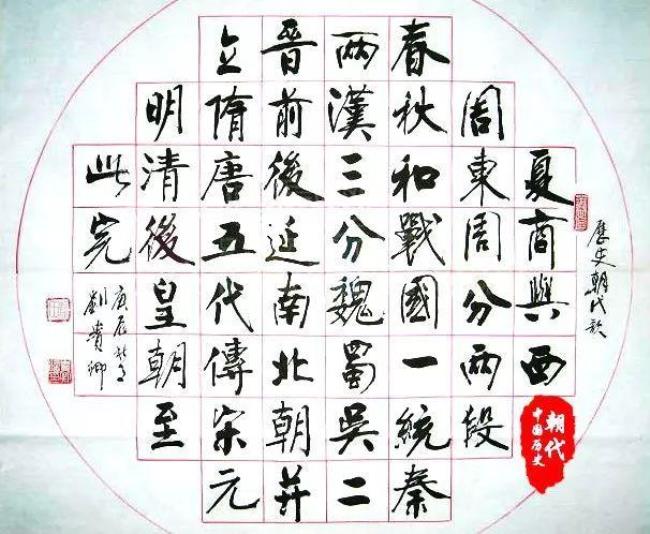 歷史朝代歌
夏商與西
周東周分兩段
春秋和戰國一統秦
兩漢三分魏蜀吳二
晉前後延南北朝并
立隋唐五代傳宋元
明清後皇朝至
此完
庚辰
劉貴卿
朝代
中国历史